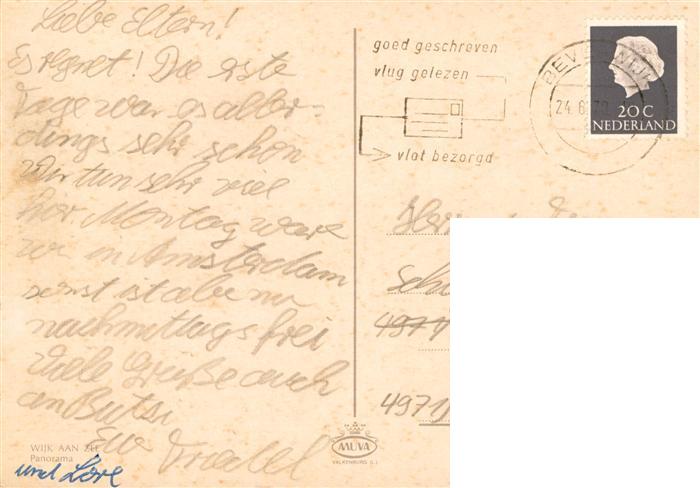 Liebe Eltern!
Es regnet! Die erste
Tage war es aller-
dings sehr schön
Wir tun sehr viel
vor. Montag ware
wir in Amsterdam
sonst ist aber nu
nachmittags frei
Viele Grüße auch
an Butsi
Eur
und Lore
WIJK AAN ZEE
Panorama
MUVA
VALKENBURG
goed geschreven
vlug gelezen
vlot bezorgd
BEVERWIJK
24.6
20 C
NEDERLAND
Herr
Sch
4971
4971